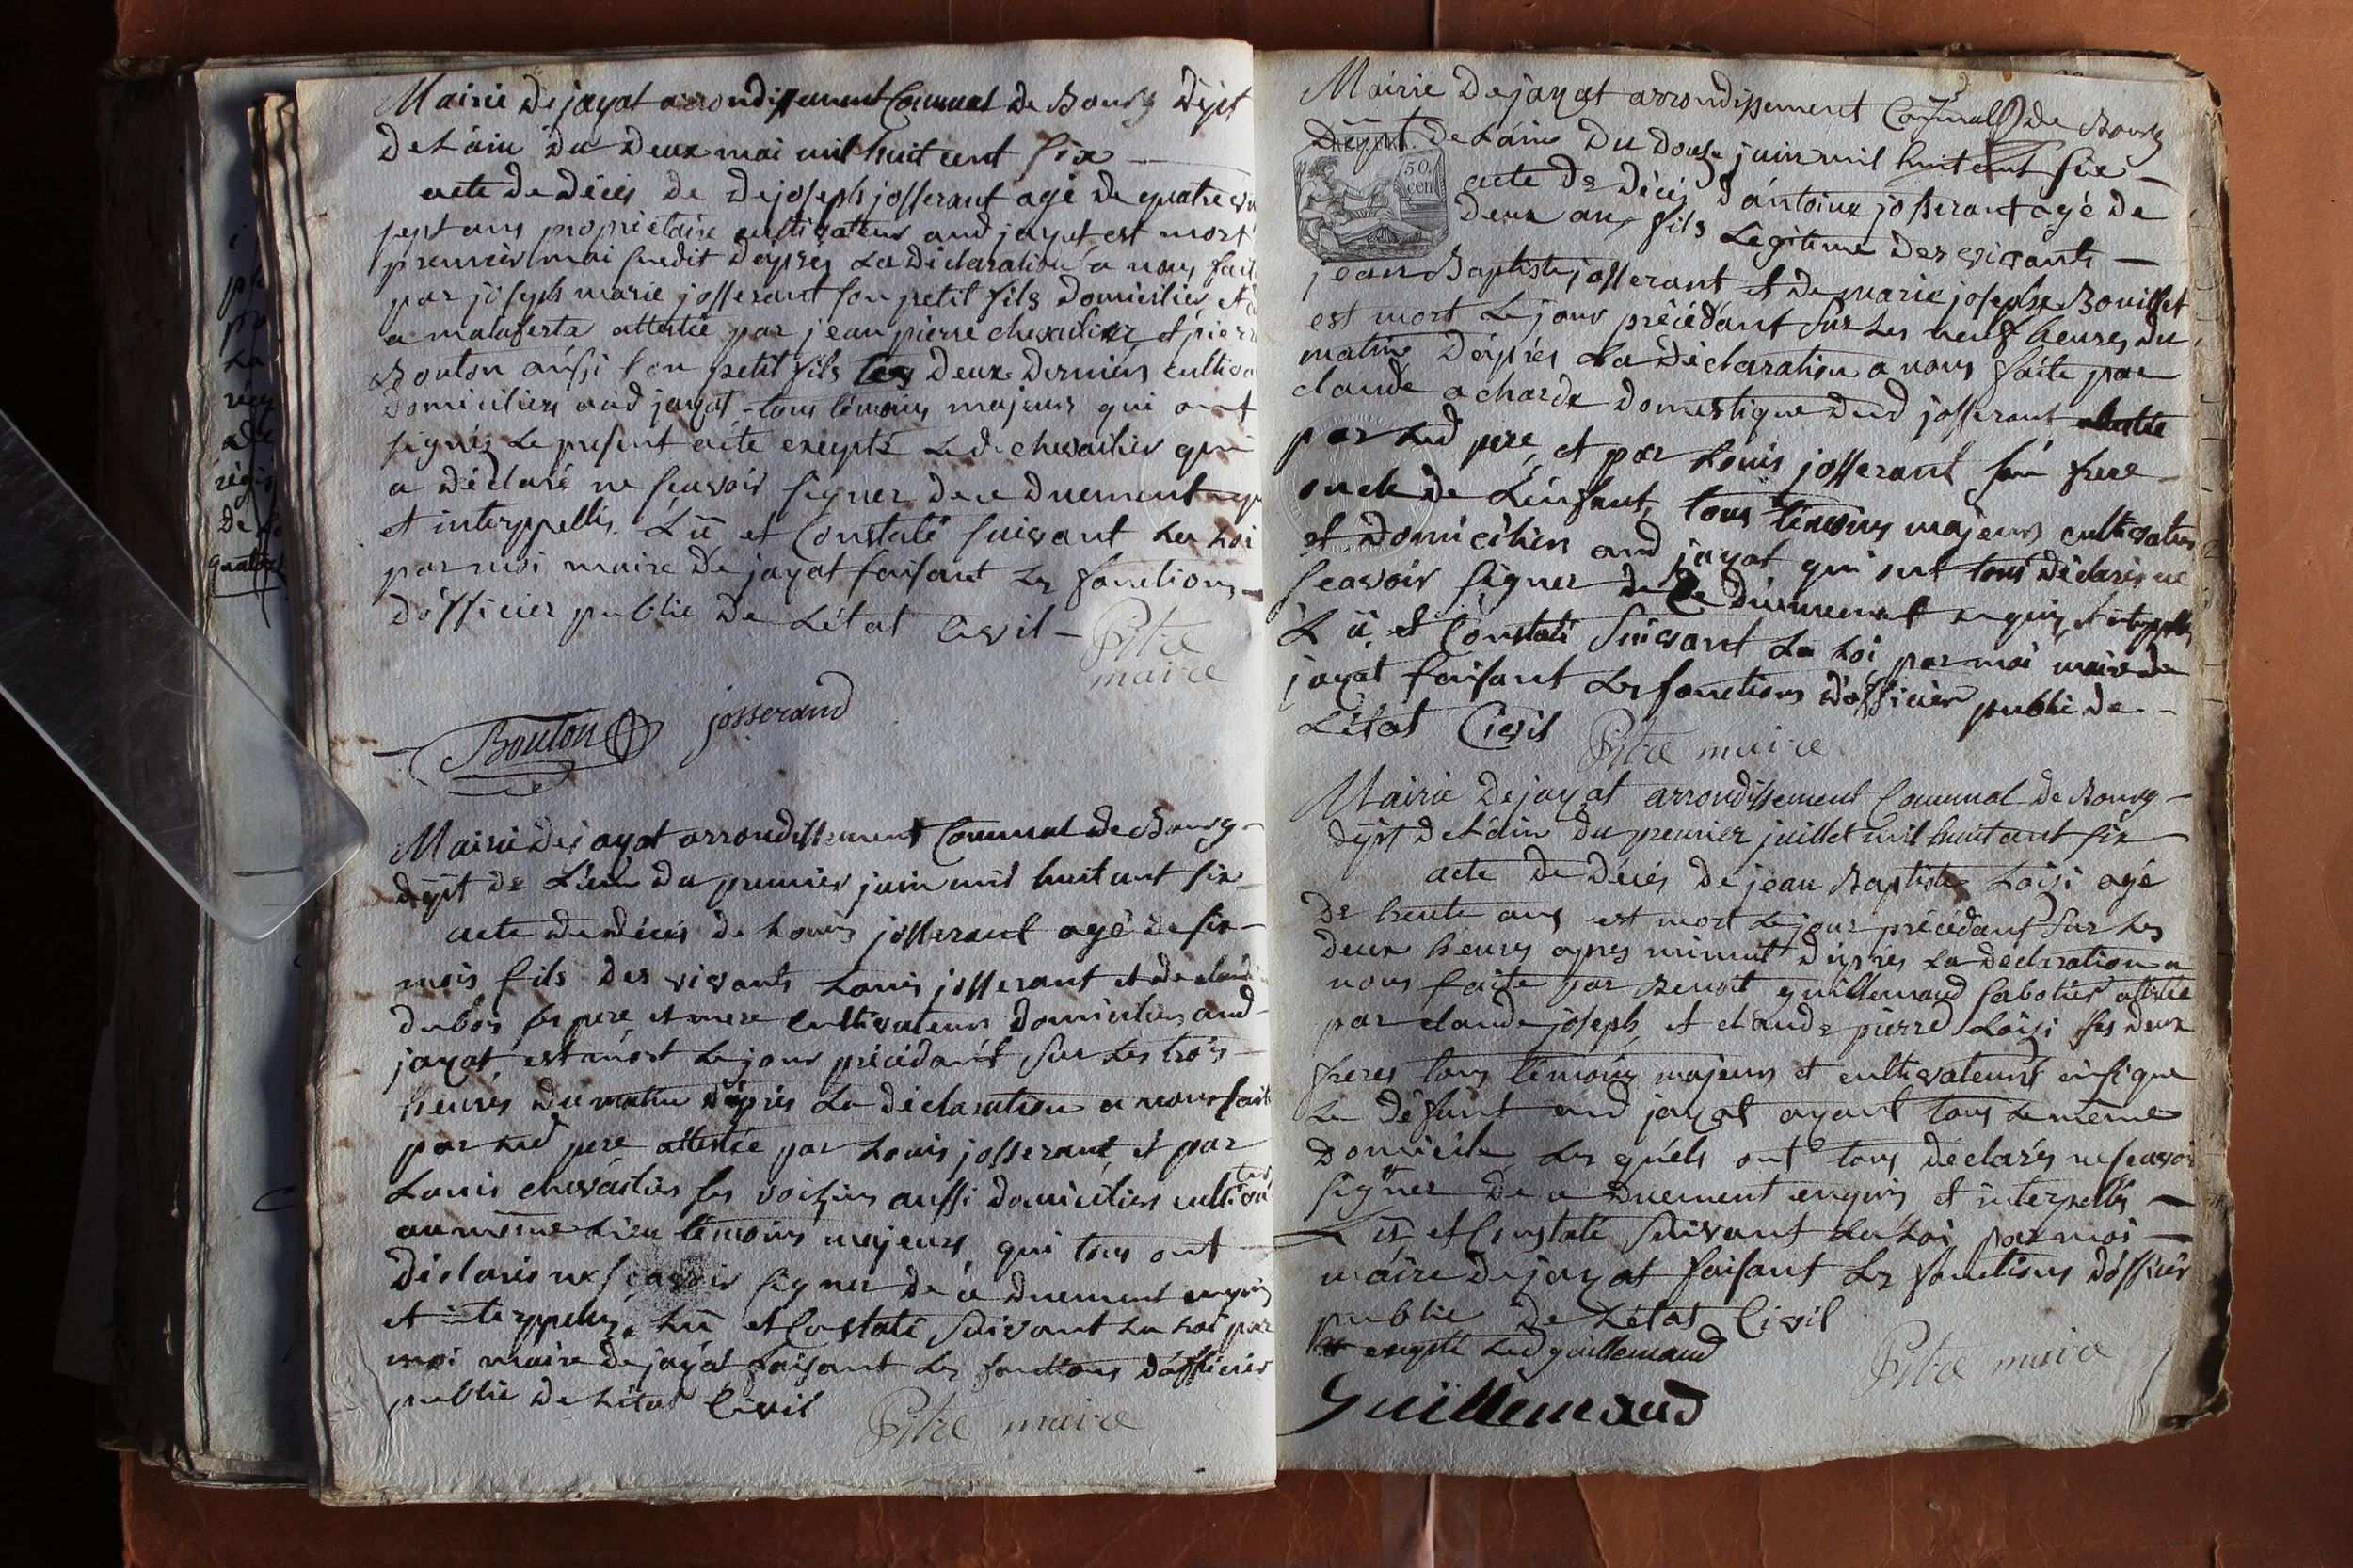 Mairie de jayat arrondissement Communal de Bourg dept
de L'ain du deux mai mil huit cent six
acte de décès de de joseph josserant agé de quatre vin
sept ans propriétaire cultivateur aud jayat est mort
premier mai susdit d'après La déclaration a nous fait
par joseph marie josserant son petit fils domicilier et
a malaferta attestée par jean pierre chevailier et pierr
Bouton aussi son petit fils les deux derniers cultiva
domiciliers aud jayat tous témoins majeurs qui ont
signés Le present acte excepté Led chevailier qui
a déclaré ne scavoir signer de ce duement
et interppellés. Lu et Constaté suivant La Loi
par moi maire de jayat faisant les fonctions
d'officier public de L'état Civil
Pitre
maire
Bouton josserand
Mairie de jayat arrondissement Communal de Bourg
dept de L'ain du premier juin mil huit cent six
acte de décès de Louis josserant agé de six
mois fils des vivants Louis josserant et de claud
dubois ses pere et mere cultivateurs domiciliers aud
jayat, est mort Le jour précédant sur Les trois
heures du matin d'après La déclaration a nous faite
par Led pere attestée par Louis josserant, et par
Louis chevailier ses voisins aussi domiciliers cultiva
teurs
au même Lieu témoins majeurs, qui tous ont
déclarés ne scavoir signer de ce duement enquis
et interppellés. Lu et Constaté suivant La Loi par
moi maire de jayat faisant Les fonctions d'officier
public de L'état Civil
Pitre maire
Mairie de jayat arrondissement Communal de Bourg
Dept de L'ain du douze juin mil huit cent six
50.
cen
acte de décès d'antoine josserant agé de
deux ans fils Légitime des vivants
jean Baptiste josserant et de marie josephe Bouillet
est mort Le jour précédant sur Les neuf heures du
matin d'après La déclaration a nous faite par
claude acharde domestique dud josserant attestée
par Led pere, et par Louis josserant son frere
oncle de L'enfant, tous témoins majeurs cultivateurs
et domiciliers aud jayat qui ont tous déclarés ne
scavoir signer de ce duement enquis, et interppellés
Lu et Constaté Suivant La Loi par moi maire de
jayat faisant Les fonctions d'officier public de
L'état Civil
Pitre maire
Mairie de jayat arrondissement Communal de Bourg
dept de L'ain du premier juillet mil huit cent six
acte de décès de jean Baptiste Loisi agé
de trente ans est mort Le jour précédant sur Les
deux heures apres minuit d'après La déclaration a
nous faite par Benoit guillemaud sabotier attestée
par claude joseph, et claude pierre Loisi ses deux
freres tous témoins majeurs et cultivateurs ainsi que
Le défunt aud jayat ayant tous Le même
domicile Les quels ont tous déclarés ne scavoir
signer de ce duement enquis et interpellés
Lu et Constaté Suivant La Loi par moi
maire de jayat faisant Les fonctions d'officier
public de L'état Civil
excepté Led guillemaud
Pitre maire
Guillemaud